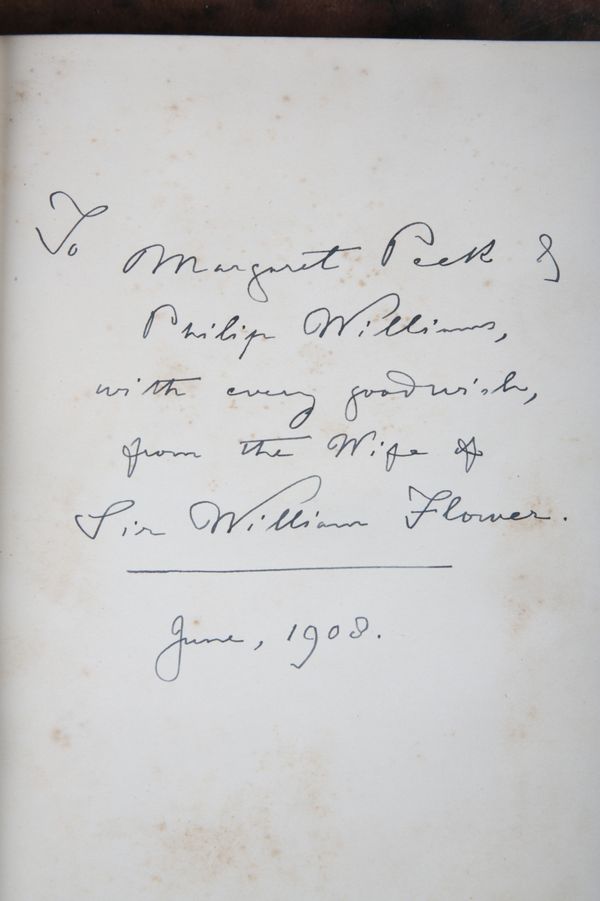 To
Margaret Peek &
Philip Williams,
with every goodwish,
from the Wife of
Sir William Flower.
June, 1908.